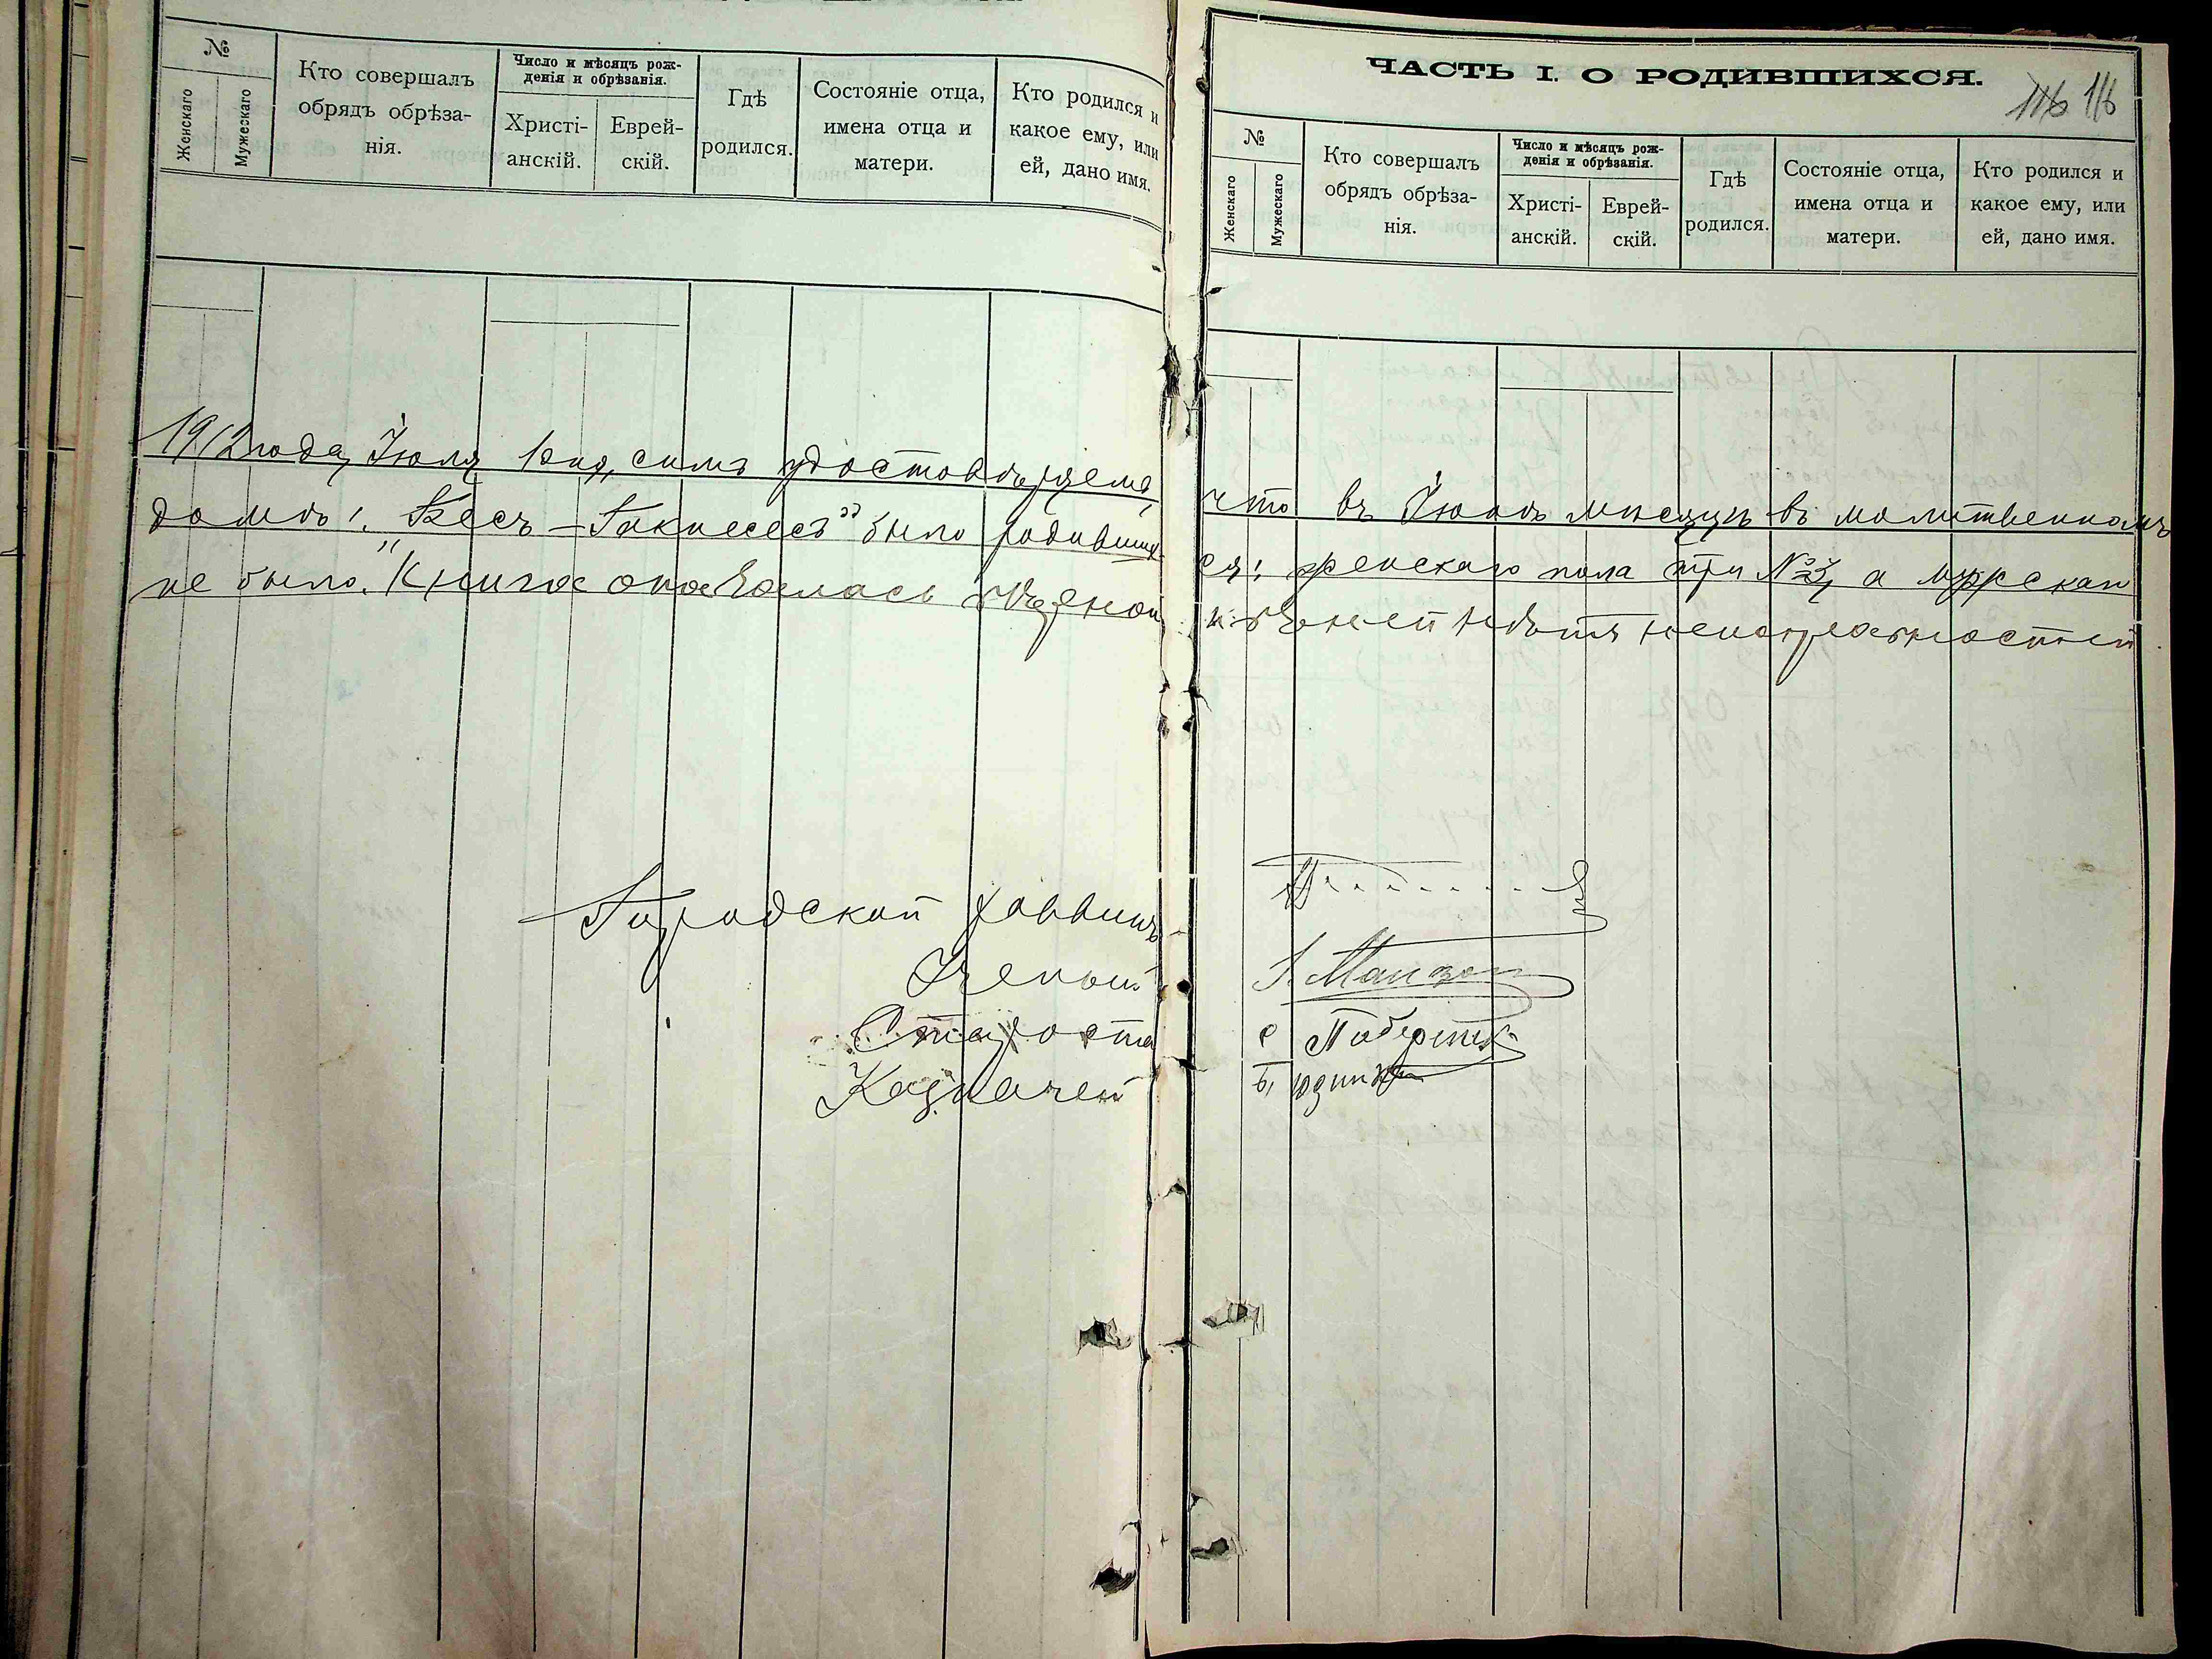 №
Женскаго
Мужескаго
Кто совершалъ
обрядъ обрѣза-
нія.
Число и мѣсяцъ рож-
денія и обрѣзанія.
Христі-
анскій.
Еврей-
скій.
Гдѣ
родился.
Состояніе отца,
имена отца и
матери.
Кто родился и
какое ему, или
ей, дано имя.
ЧАСТЬ I. О РОДИВШИХСЯ.
116 116
№
Женскаго
Мужескаго
Кто совершалъ
обрядъ обрѣза-
нія.
Число и мѣсяцъ рож-
денія и обрѣзанія.
Христі-
анскій.
Еврей-
скій.
Гдѣ
родился.
Состояніе отца,
имена отца и
матери.
Кто родился и
какое ему, или
ей, дано имя.
1912 года, Іюля 1 дня, симъ удостовѣряемъ, что въ Іюнѣ мѣсяцѣ въ молитвенномъ
домѣ: „Бесъ-Гакнесесъ" было родивших-ся: женскаго пола три №3, а мужскаго
не было. Книга оказалась въ
Городской раввинъ
Ученый
Староста
Казначей